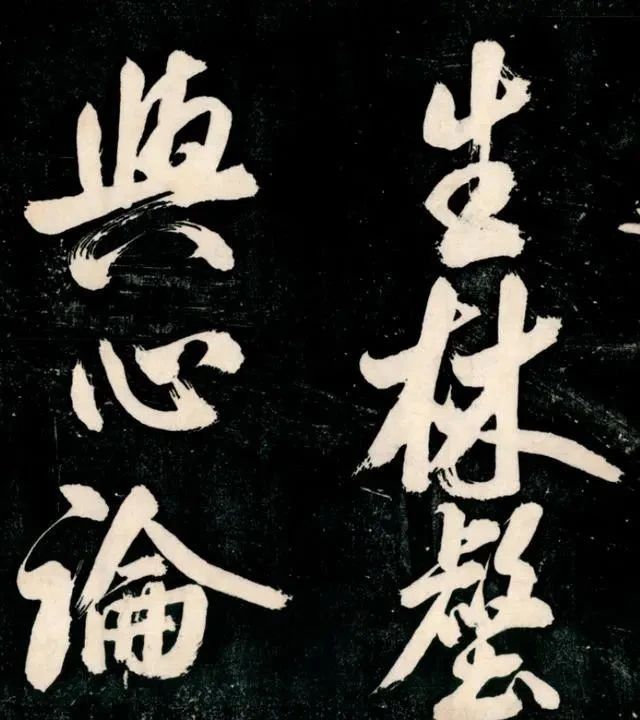 生林壑
與心論